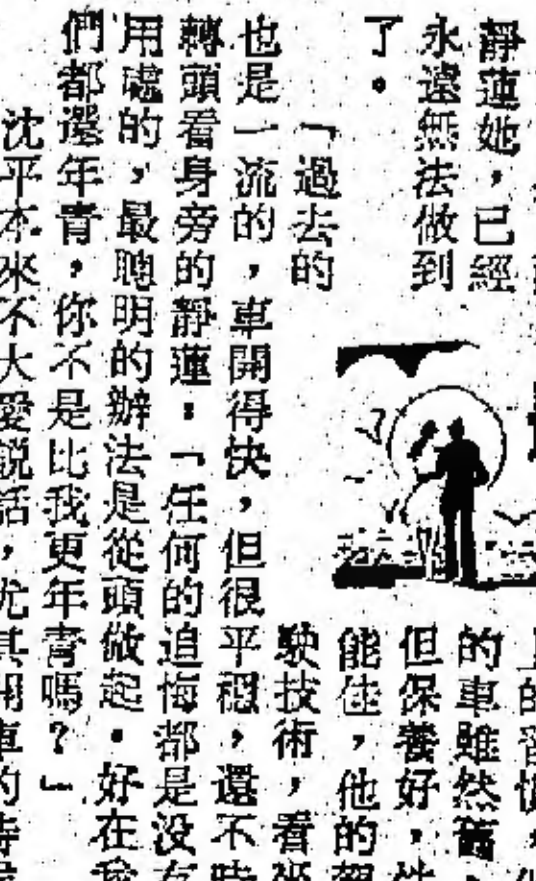 靜蓮她，已經
永遠無法做到
了。
「過去的
的車雖然舊，
但保養好，性
能佳，他的
駛技術，看來
也是一流的，車開得快，但很平穩，還不時
轉頭看身旁的靜蓮：「任何的追悔都是沒有
用處的，最聰明的辦法是從頭做起。好在我
們都還年青，你不是比我更年青嗎？」
沈平本來不大愛說話，尤其開車的時